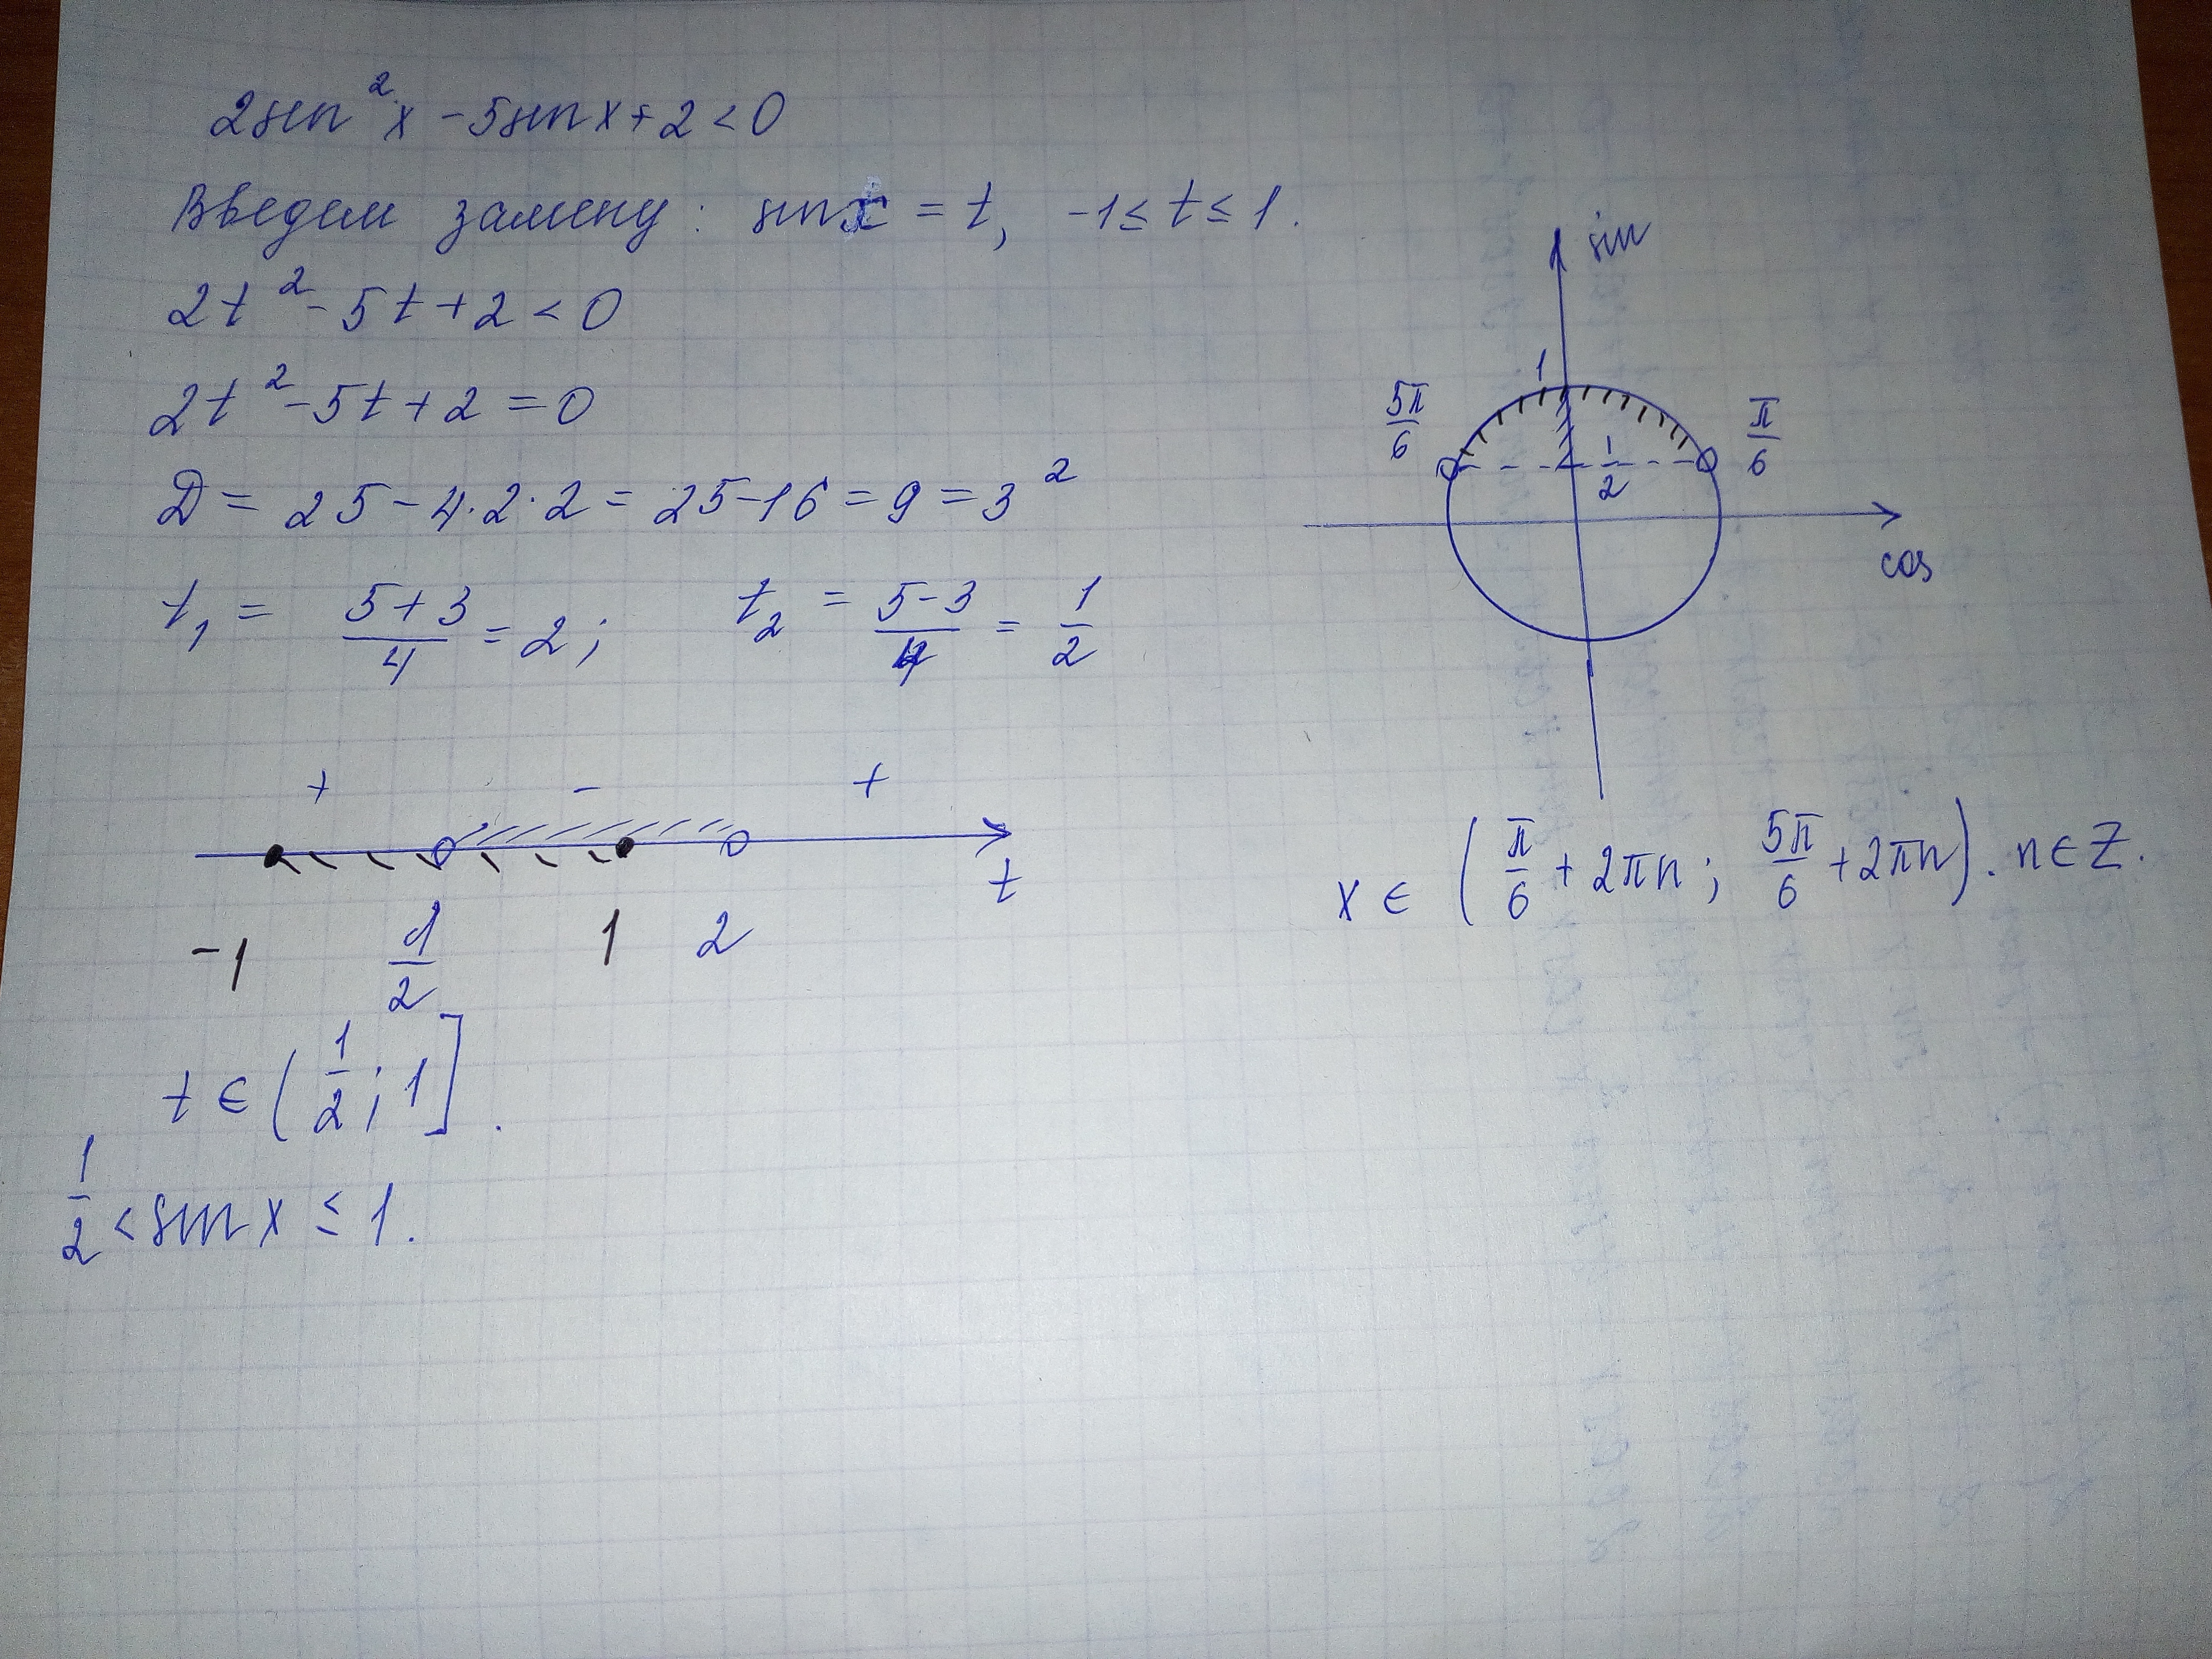 2sin²x - 5sinx + 2 < 0
Введем замену: sinx = t, -1 ≤ t ≤ 1.
2t² - 5t + 2 < 0
2t² - 5t + 2 = 0
D = 25 - 4·2·2 = 25 - 16 = 9 = 3²
t₁ = (5+3)/4 = 2; t₂ = (5-3)/4 = 1/2
+ - +
t
-1 1/2 1 2
t ∈ (1/2; 1].
1/2 < sinx ≤ 1.
sin
1
5π/6 π/6
1/2
cos
x ∈ (π/6 + 2πn; 5π/6 + 2πn). n ∈ Z.